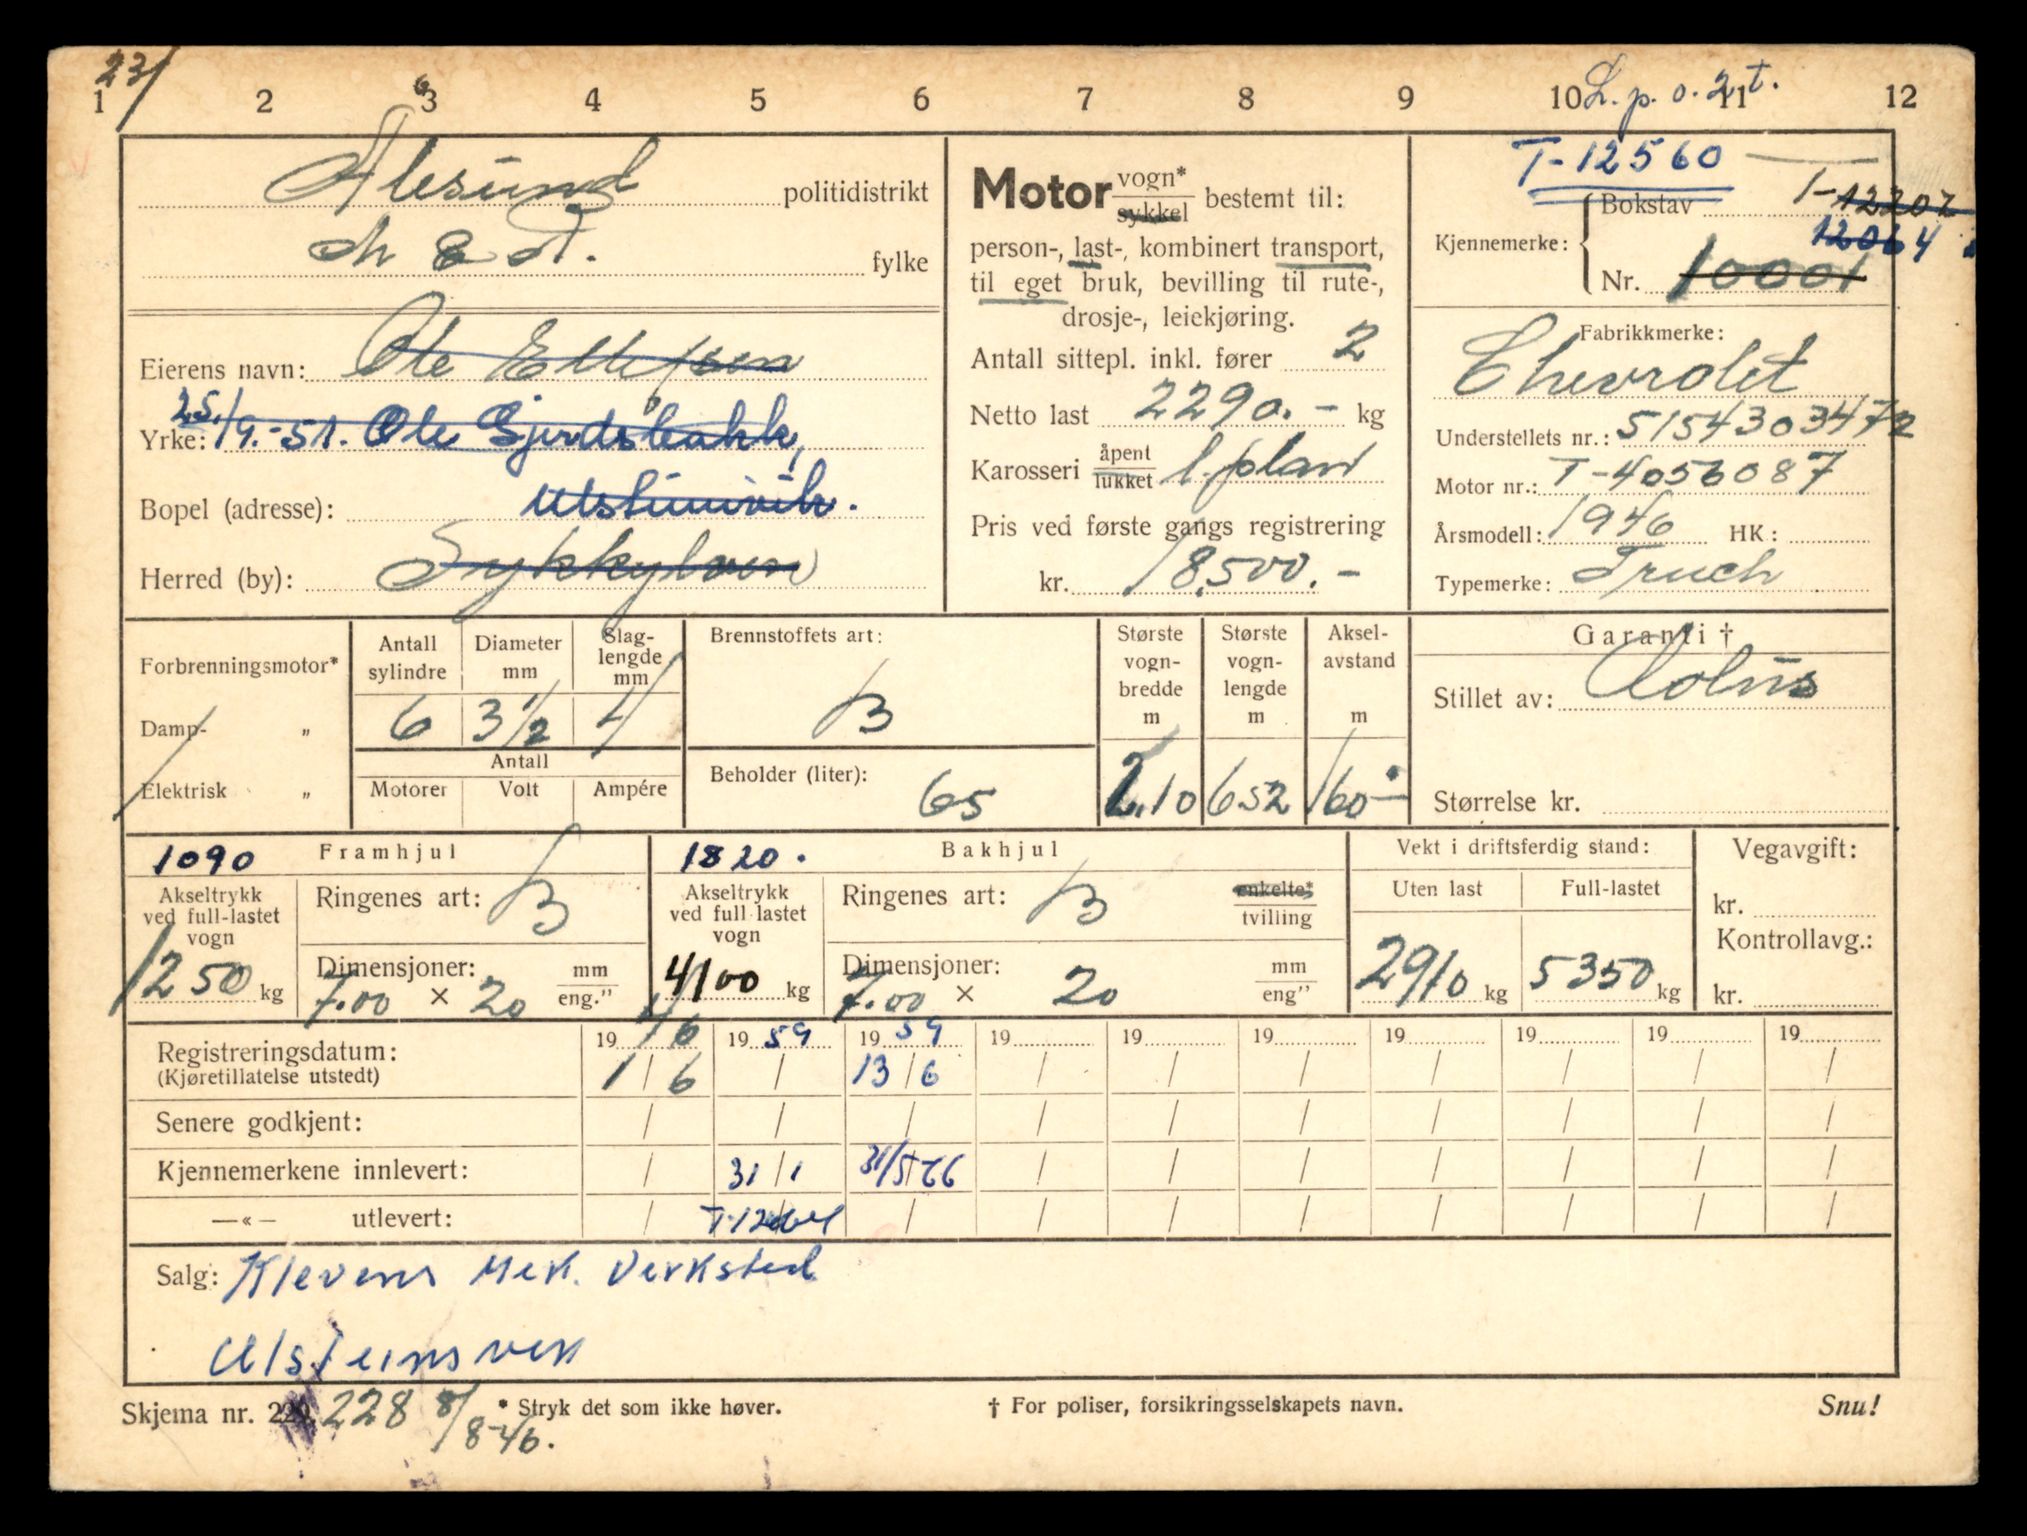 23/
1 2 3 4 5 6 7 8 9 10 11 12
6
L. p. o. 2 t.
Ålesund politidistrikt
M & R. fylke
Eierens navn: Ole Ellefsen
Yrke: 25./9.-51. Ole Gjerdsbakk,
Bopel (adresse): Ulsteinvik.
Herred (by): Sykkylven
Motor vogn* sykkel bestemt til:
person-, last-, kombinert transport,
til eget bruk, bevilling til rute-,
drosje-, leiekjøring.
Antall sittepl. inkl. fører 2
Netto last 2290.- kg
Karosseri åpent lukket l. plan
Pris ved første gangs registrering
kr. 18,500.-
T-12560
Kjennemerke: Bokstav T-12207
12064
Nr. 10001
Fabrikkmerke:
Chevrolet
Understellets nr.: 5154303472
Motor nr.: T-4056087
Årsmodell: 1946 HK:
Typemerke: Truck
Forbrenningsmotor*
Damp- „
Elektrisk „
Antall sylindre Diameter mm Slaglengde mm
6 3 1/2 4
Antall
Motorer Volt Ampére
Brennstoffets art:
B
Beholder (liter): 65
Største vogn-bredde m Største vogn-lengde m Aksel-avstand m
2.10 652 160"
Garanti †
Stillet av: Æolus
Størrelse kr.
1090 Framhjul
Akseltrykk ved full-lastet vogn
1250 kg
Ringenes art: B
Dimensjoner: mm eng."
7.00 × 20
1820. Bakhjul
Akseltrykk ved full lastet vogn
4100 kg
Ringenes art: B enkelte* tvilling
Dimensjoner: mm eng"
7.00 × 20
Vekt i driftsferdig stand:
Uten last Full-lastet
2910 kg 5350 kg
Vegavgift:
kr.
Kontrollavg.:
kr.
Registreringsdatum: 1946 1959 1959 19 19 19 19 19 19 19
(Kjøretillatelse utstedt) 1/6 / 13/6 / / / / / / /
Senere godkjent: / / / / / / / / / /
Kjennemerkene innlevert: / 31/1 31/5 66 / / / / / / /
—«— utlevert: / T-12064 / / / / / / / /
Salg: Klevens Mek. Verksted
Ulsteinsvik
Skjema nr. 228 8/8-46.
* Stryk det som ikke høver.
† For poliser, forsikringsselskapets navn.
Snu!